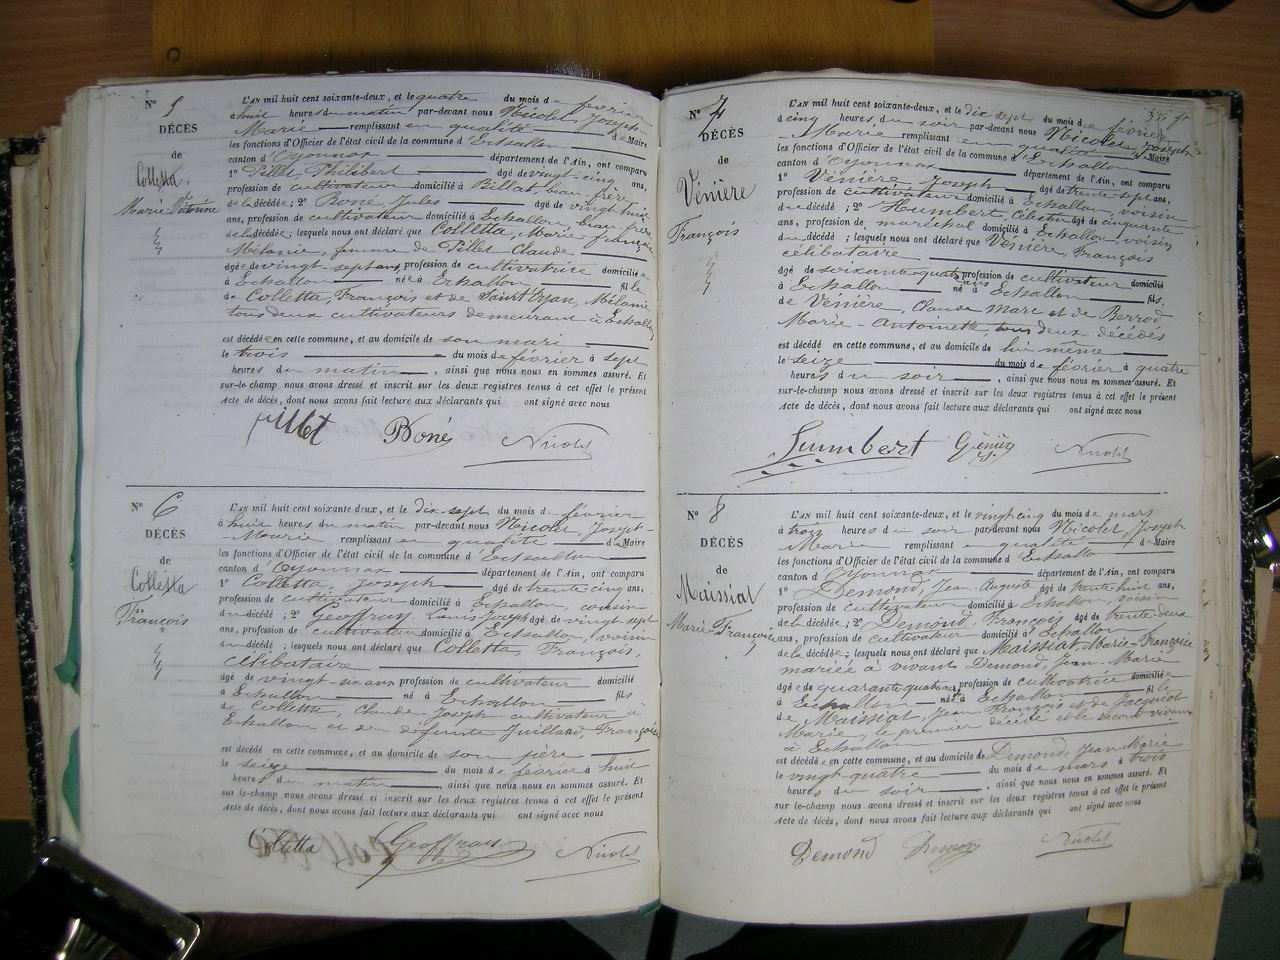 N° 5
DÉCÈS
de
Colletta
Marie
L'AN mil huit cent soixante-deux, et le quatre du mois de février
à huit heures du matin par-devant nous Nicolet Joseph
Marie remplissant en qualité de Maire
les fonctions d'Officier de l'état civil de la commune d'Échallon
canton d'Oyonnax département de l'Ain, ont comparu
1° Pillet Philibert âgé de vingt-cinq ans,
profession de cultivateur domicilié à Billiat beau frère
de la décédée; 2° Boné, Jules âgé de vingt huit
ans, profession de cultivateur domicilié à Echallon beau frère
de la décédée; lesquels nous ont déclaré que Colletta, Marie françoise
Mélanie, femme de Pillet Claude
âgée de vingt-sept ans, profession de cultivatrice domiciliée
à Echallon née à Echallon fille
de Colletta, François et de Mélanie
tous deux cultivateurs demeurant à Echallon
est décédée en cette commune, et au domicile de son mari
le trois du mois de février à sept
heures du matin, ainsi que nous nous en sommes assuré. Et
sur-le-champ nous avons dressé et inscrit sur les deux registres tenus à cet effet le présent
Acte de décès, dont nous avons fait lecture aux déclarants qui ont signé avec nous
pillet Boné Nicolet
N° 6
DÉCÈS
de
Colletta
François
L'AN mil huit cent soixante deux, et le dix-sept du mois de février
à huit heures du matin par-devant nous Nicolet Joseph-
Marie remplissant en qualité de Maire
les fonctions d'Officier de l'état civil de la commune d'Echallon
canton d'Oyonnax département de l'Ain, ont comparu
1° Colletta, Joseph âgé de trente cinq ans,
profession de cultivateur domicilié à Echallon, cousin
du décédé; 2° Geoffray Louis Joseph âgé de vingt sept
ans, profession de cultivateur domicilié à Echallon, voisin
du décédé; lesquels nous ont déclaré que Colletta, François,
célibataire
âgé de vingt-six ans profession de cultivateur domicilié
à Echallon né à Echallon fils
de Colletta, Claude Joseph cultivateur à
Echallon et de défunte Juilland, Françoise
est décédé en cette commune, et au domicile de son père
le seize du mois de février à huit
heures du matin, ainsi que nous nous en sommes assuré. Et
sur-le-champ nous avons dressé et inscrit sur les deux registres tenus à cet effet le présent
Acte de décès, dont nous avons fait lecture aux déclarants qui ont signé avec nous
Colletta Geoffray Nicolet
N° 7
DÉCÈS
de
Vénière
François
L'AN mil huit cent soixante-deux, et le dix sept du mois de février
à cinq heures du soir par-devant nous Nicolet Joseph
Marie remplissant en qualité de Maire
les fonctions d'Officier de l'état civil de la commune d'Echallon
canton d'Oyonnax département de l'Ain, ont comparu
1° Vénière Joseph âgé de trente sept ans,
profession de cultivateur domicilié à Echallon, voisin
du décédé; 2° Humbert, Célestin âgé de cinquante
ans, profession de maréchal domicilié à Echallon voisin
du décédé; lesquels nous ont déclaré que Vénière, François
célibataire
âgé de soixante-quatre ans profession de cultivateur domicilié
à Echallon né à Echallon fils
de Vénière, Claude Marc et de Berrod
Marie-Antoinette tous deux décédés
est décédé en cette commune, et au domicile de lui même
le seize du mois de février à quatre
heures du soir, ainsi que nous nous en sommes assuré. Et
sur-le-champ nous avons dressé et inscrit sur les deux registres tenus à cet effet le présent
Acte de décès, dont nous avons fait lecture aux déclarants qui ont signé avec nous
humbert Nicolet
N° 8
DÉCÈS
de
Maissiat
Marie-Françoise
L'AN mil huit cent soixante-deux, et le vingt cinq du mois de mars
à trois heures du soir par-devant nous Nicolet Joseph
Marie remplissant en qualité de Maire
les fonctions d'Officier de l'état civil de la commune d'Echallon
canton d'Oyonnax département de l'Ain, ont comparu
1° Demond, Jean Auguste âgé de trente huit ans,
profession de cultivateur domicilié à Echallon voisin
de la décédée; 2° Demond, François âgé de trente deux
ans, profession de cultivateur domicilié à Echallon
de la décédée; lesquels nous ont déclaré que Maissiat, Marie-Françoise
mariée à vivant Demond, Jean-Marie
âgée de quarante quatre ans profession de cultivatrice domiciliée
à Echallon née à Echallon fille
de Maissiat, Jean François et de Jacquiot
Marie, le premier décédé et la seconde vivante
à Echallon
est décédée en cette commune, et au domicile de Demond, Jean Marie
le vingt-quatre du mois de mars à trois
heures du soir, ainsi que nous nous en sommes assuré. Et
sur-le-champ nous avons dressé et inscrit sur les deux registres tenus à cet effet le présent
Acte de décès, dont nous avons fait lecture aux déclarants qui ont signé avec nous
Demond Demond Nicolet